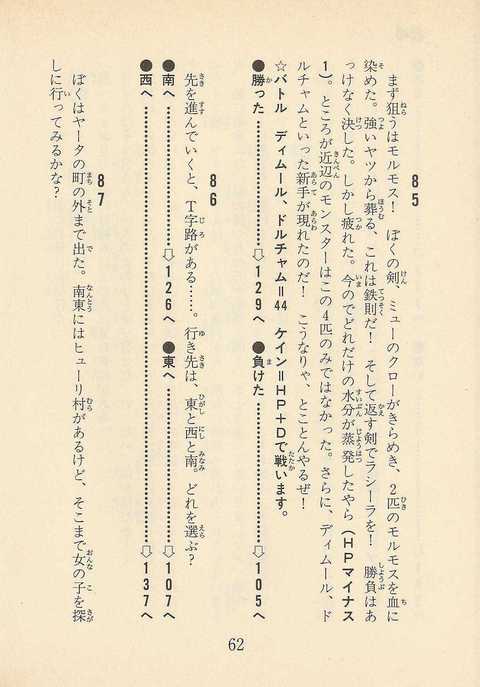 85
まず狙うはモルモス！　ぼくの剣、ミューのクローがきらめき、2匹のモルモスを血に
染めた。強いヤツから葬る、これは鉄則だ！　そして返す剣でラシーラを！　勝負はあ
っけなく決した。しかし疲れた。今のでどれだけの水分が蒸発したやら（HPマイナス
1）。ところが近辺のモンスターはこの4匹のみではなかった。さらに、ディムール、ド
ルチャムといった新手が現れたのだ！　こうなりゃ、とことんやるぜ！
☆バトル　ディムール、ドルチャム＝44　ケイン＝HP＋Dで戦います。
●勝った…………………⇨129へ　●負けた…………………⇨105へ
86
先を進んでいくと、T字路がある……。行き先は、東と西と南。どれを選ぶ？
●南へ…………………⇨126へ　●東へ…………………⇨107へ
●西へ……………………………………………………⇨137へ
87
ぼくはヤータの町の外まで出た。南東にはヒューリ村があるけど、そこまで女の子を探
しに行ってみるかな？
62